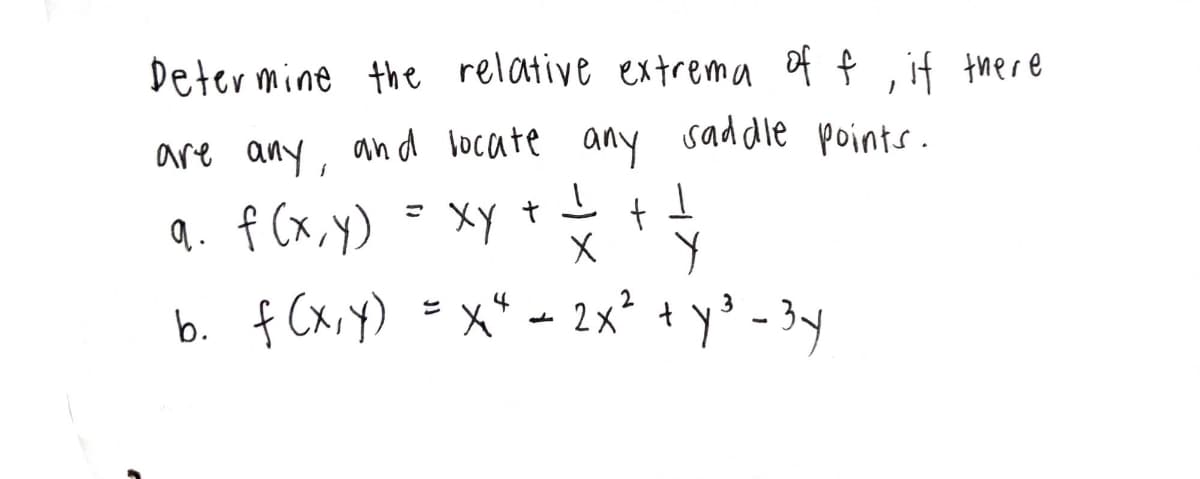 Determine the relative extrema of f , if there
are any , and locate any saddle points.
a. f(x,y) = xy + 1/x + 1/y
b. f(x,y) = x⁴ - 2x² + y³ - 3y